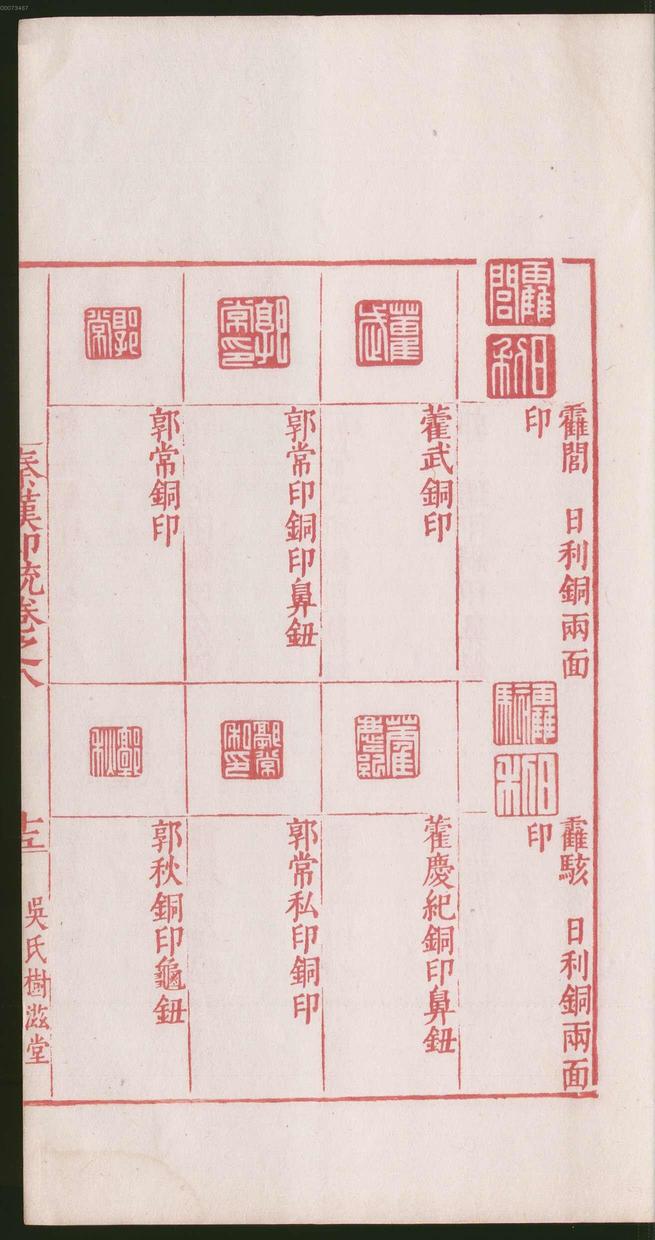 00073467
靃閭　日利銅兩面
印
藿武銅印
郭常印銅印鼻鈕
郭常銅印
靃駭　日利銅兩面
印
藿慶紀銅印鼻鈕
郭常私印銅印
郭秋銅印龜鈕
秦漢印統卷之八
十三
吳氏樹滋堂